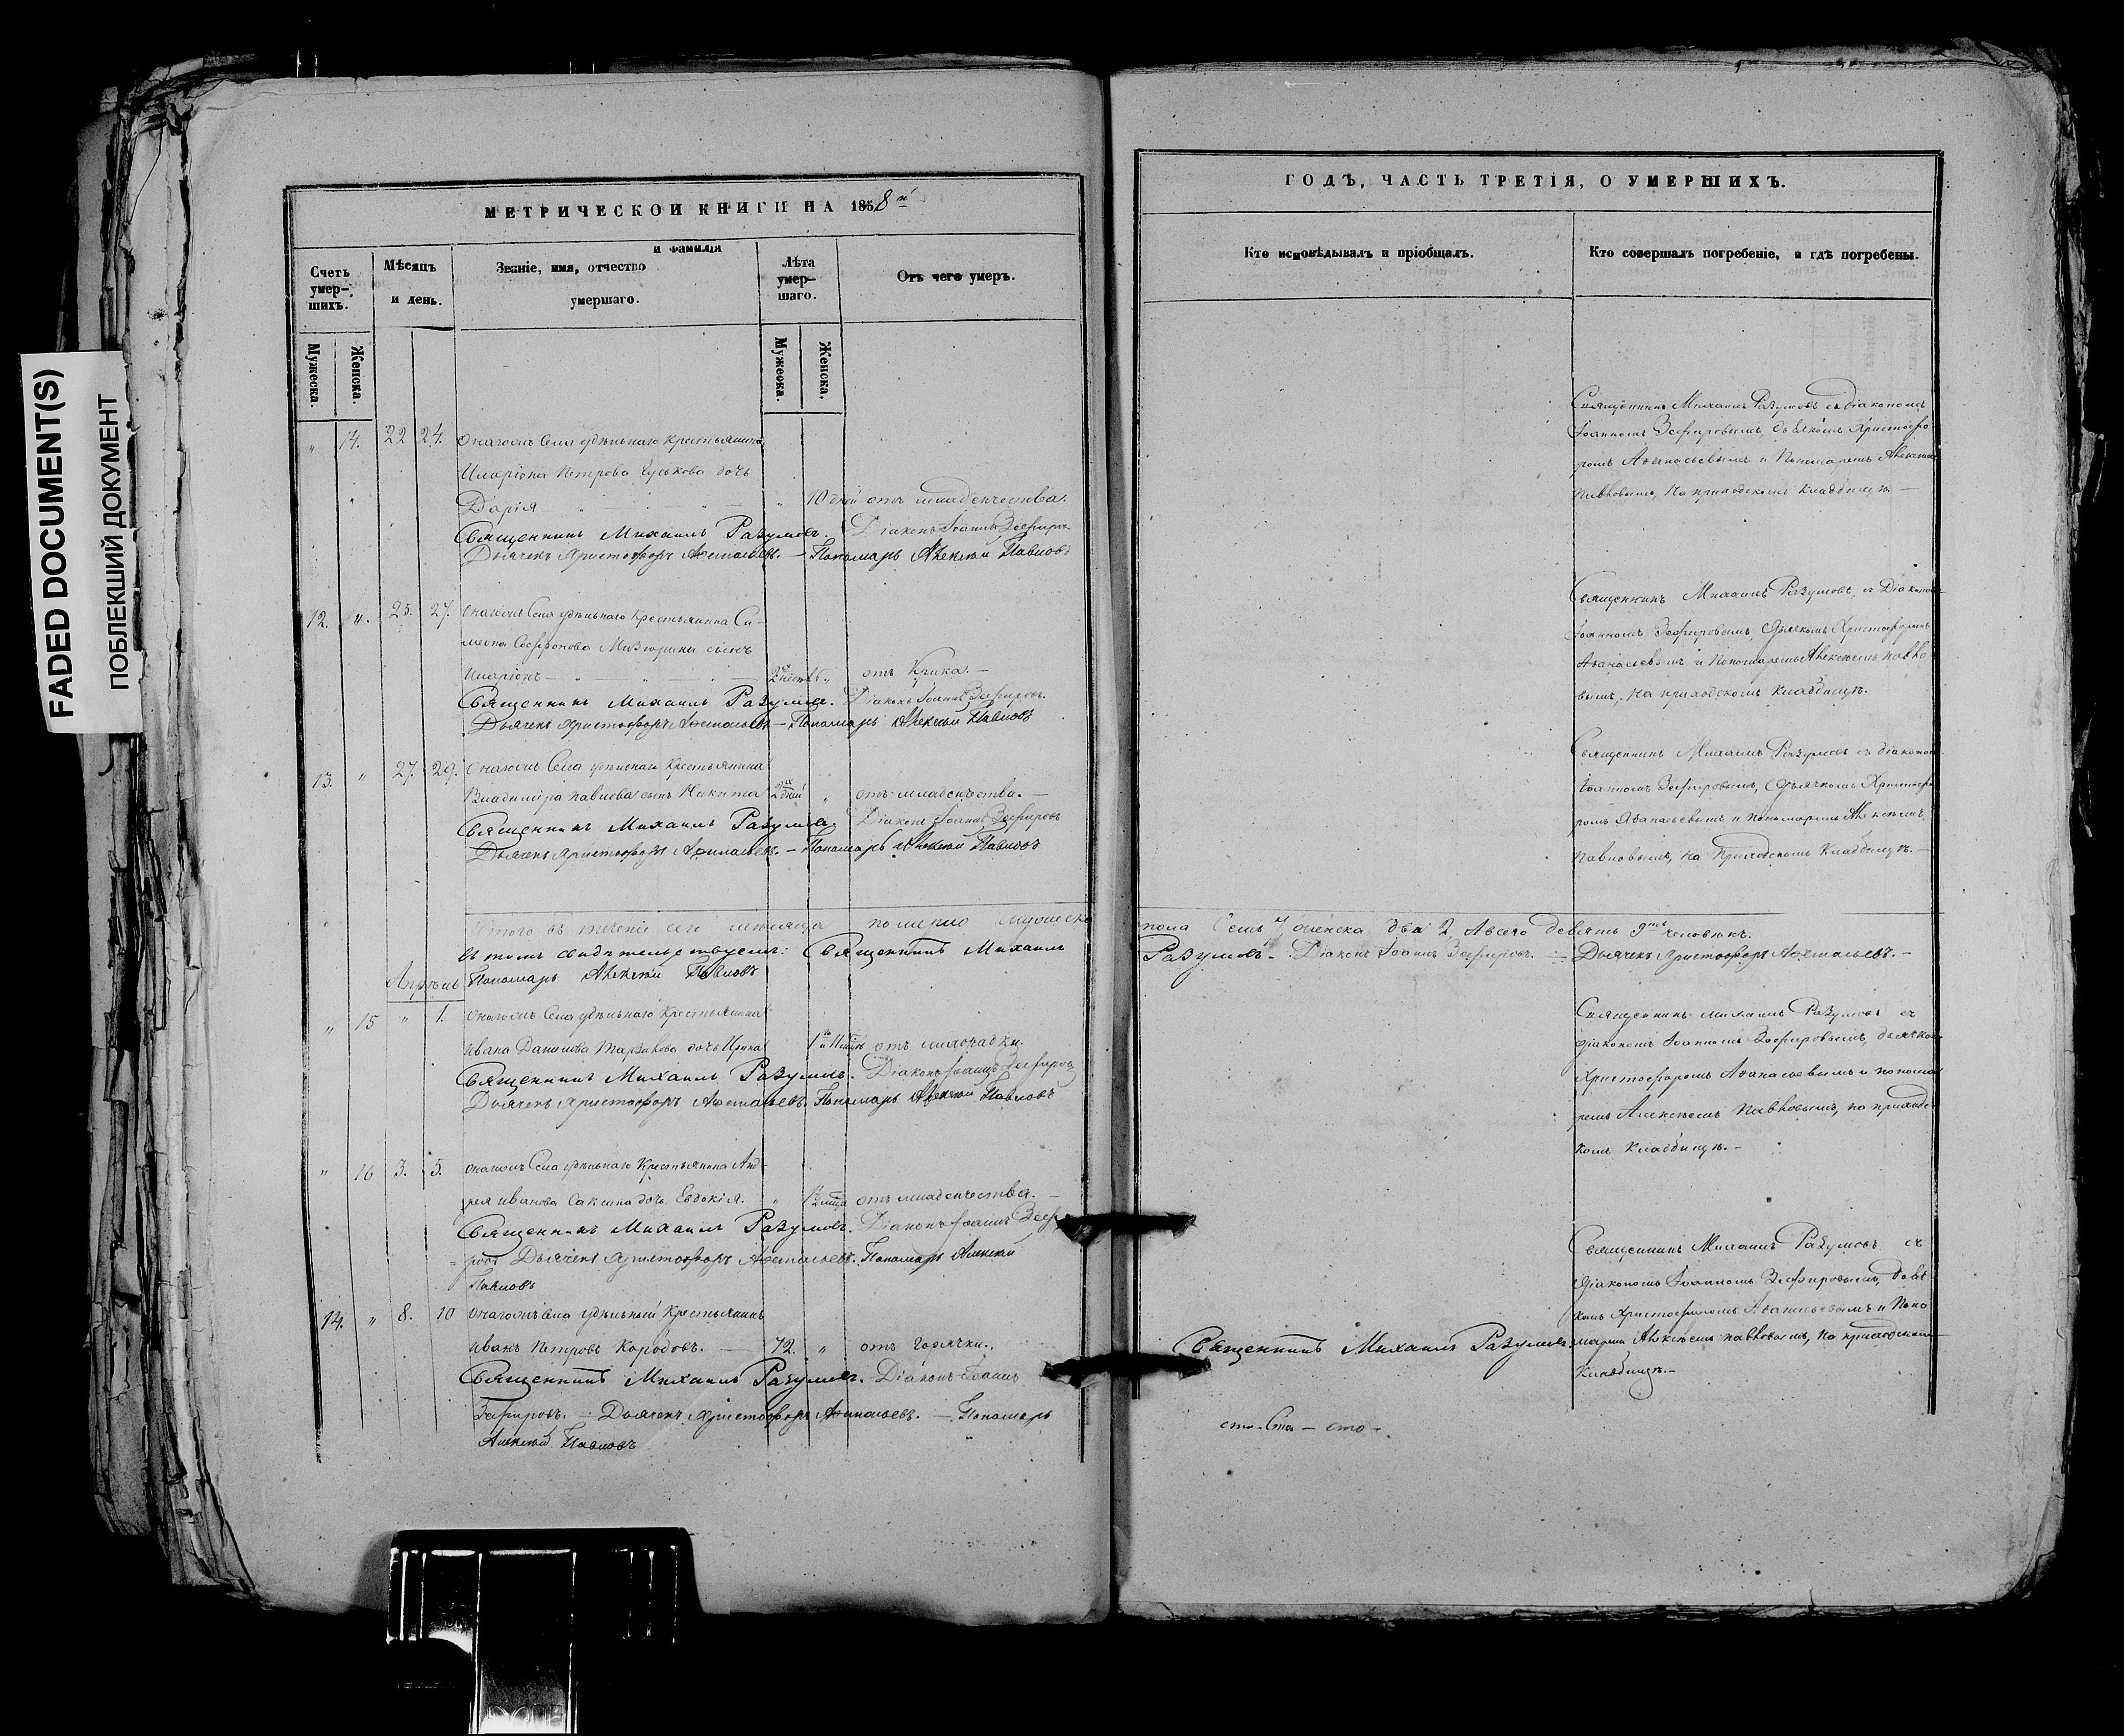 FADED DOCUMENT(S)
ПОБЛЕКШИЙ ДОКУМЕНТ
МЕТРИЧЕСКОЙ КНИГИ НА 1858й
Счетъ умер-шихъ.
Мѣсяцъ и день.
Званіе, имя, отчество и фамилія умершаго.
Лѣта умер-шаго.
Отъ чего умеръ.
Мужеска.
Женска.
Мужеска.
Женска.
" 14. 22 24. Онагожъ Села удѣльнаго крестьянина
Иларіона Петрова дочь
Дарія " 10 дней отъ младенчества.
Священникъ Михаилъ Разумовъ. Діаконъ Іоаннъ Зефировъ
Дьячекъ Христофоръ Афанасьевъ. — Пономарь Алексѣй Павловъ
12. ". 25. 27. Онагожъ Села удѣльнаго Крестьянина Си-
меона Софронова сынъ
Иларіонъ — " отъ Крика. —
Священникъ Михаилъ Разумовъ. Діаконъ Іоаннъ Зефировъ.
Дьячекъ Христофоръ Афанасьевъ — Пономарь Алексѣй Павловъ
13. " 27. 29. Онагожъ Села удѣльнаго Крестьянина
Владиміра Павлова сынъ Никита 2х дней " отъ младенчества. —
Священникъ Михаилъ Разумовъ. Діаконъ Іоаннъ Зефировъ
Дьячекъ Христофоръ Афанасьевъ. — Пономарь Алексѣй Павловъ
Итого въ теченіе сего мѣсяца померло мужеска
въ томъ свидѣтельствуемъ: Священникъ Михаилъ
Апрѣль Пономарь Алексѣй Павловъ
" 15 " 1. Онагожъ Села удѣльнаго Крестьянина
Ивана Данилова дочь Ирина отъ лихорадки.
Священникъ Михаилъ Разумовъ. Діаконъ Іоаннъ Зефировъ
Дьячекъ Христофоръ Афанасьевъ. Пономарь Алексѣй Павловъ
" 16 3. 5. Онагожъ Села удѣльнаго Крестьянина Анд-
рея Иванова дочь Евдокія. " отъ младенчества. —
Священникъ Михаилъ Разумовъ. Діаконъ Іоаннъ Зефи-
=ровъ Дьячекъ Христофоръ Афанасьевъ. Пономарь Алексѣй
Павловъ
14. " 8. 10 Онагожъ Села удѣльный Крестьянинъ
Иванъ Петровъ Коробовъ. — 72. " отъ горячки.
Священникъ Михаилъ Разумовъ. Діаконъ Іоаннъ
Зефировъ. — Дьячекъ Христофоръ Афанасьевъ. — Пономарь
Алексѣй Павловъ
ГОДЪ, ЧАСТЬ ТРЕТІЯ, О УМЕРШИХЪ.
Кто исповѣдывалъ и пріобщалъ.
Кто совершалъ погребеніе, и гдѣ погребены.
Священникъ Михаилъ Разумовъ съ діакономъ
Іоанномъ Зефировымъ, дьякомъ Христофо
ромъ Афанасьевымъ и Пономаремъ Алексѣемъ
Павловымъ, на приходскомъ кладбищѣ. —
Священникъ Михаилъ Разумовъ, съ Діакономъ
Іоанномъ Зефировымъ, Дьячкомъ Христофоромъ
Афанасьевымъ и Пономаремъ Алексѣемъ Павло
вымъ, на приходскомъ кладбищѣ.
Священникъ Михаилъ Разумовъ съ діакономъ
Іоанномъ Зефировымъ, Дьячкомъ Христофо
ромъ Афанасьевымъ и пономаремъ Алексѣемъ
Павловымъ, на Приходскомъ Кладбищѣ. —
пола Семь 7, женска два 2, А всего девять 9ть человѣкъ.
Разумовъ — Діаконъ Іоаннъ Зефировъ. — Дьячекъ Христофоръ Афанасьевъ. —
Священникъ Михаилъ Разумовъ съ
діакономъ Іоанномъ Зефировымъ, дьячкомъ
Христофоромъ Афанасьевымъ и понома
ремъ Алексѣемъ Павловымъ, на приходс-
комъ кладбищѣ. —
Священникъ Михаилъ Разумовъ съ
Діакономъ Іоанномъ Зефировымъ,
Христофоромъ Афанасьевымъ и Поно
Священникъ Михаилъ Разумовъ. маремъ Алексѣемъ Павловымъ, на приходскомъ
Кладбищѣ. —